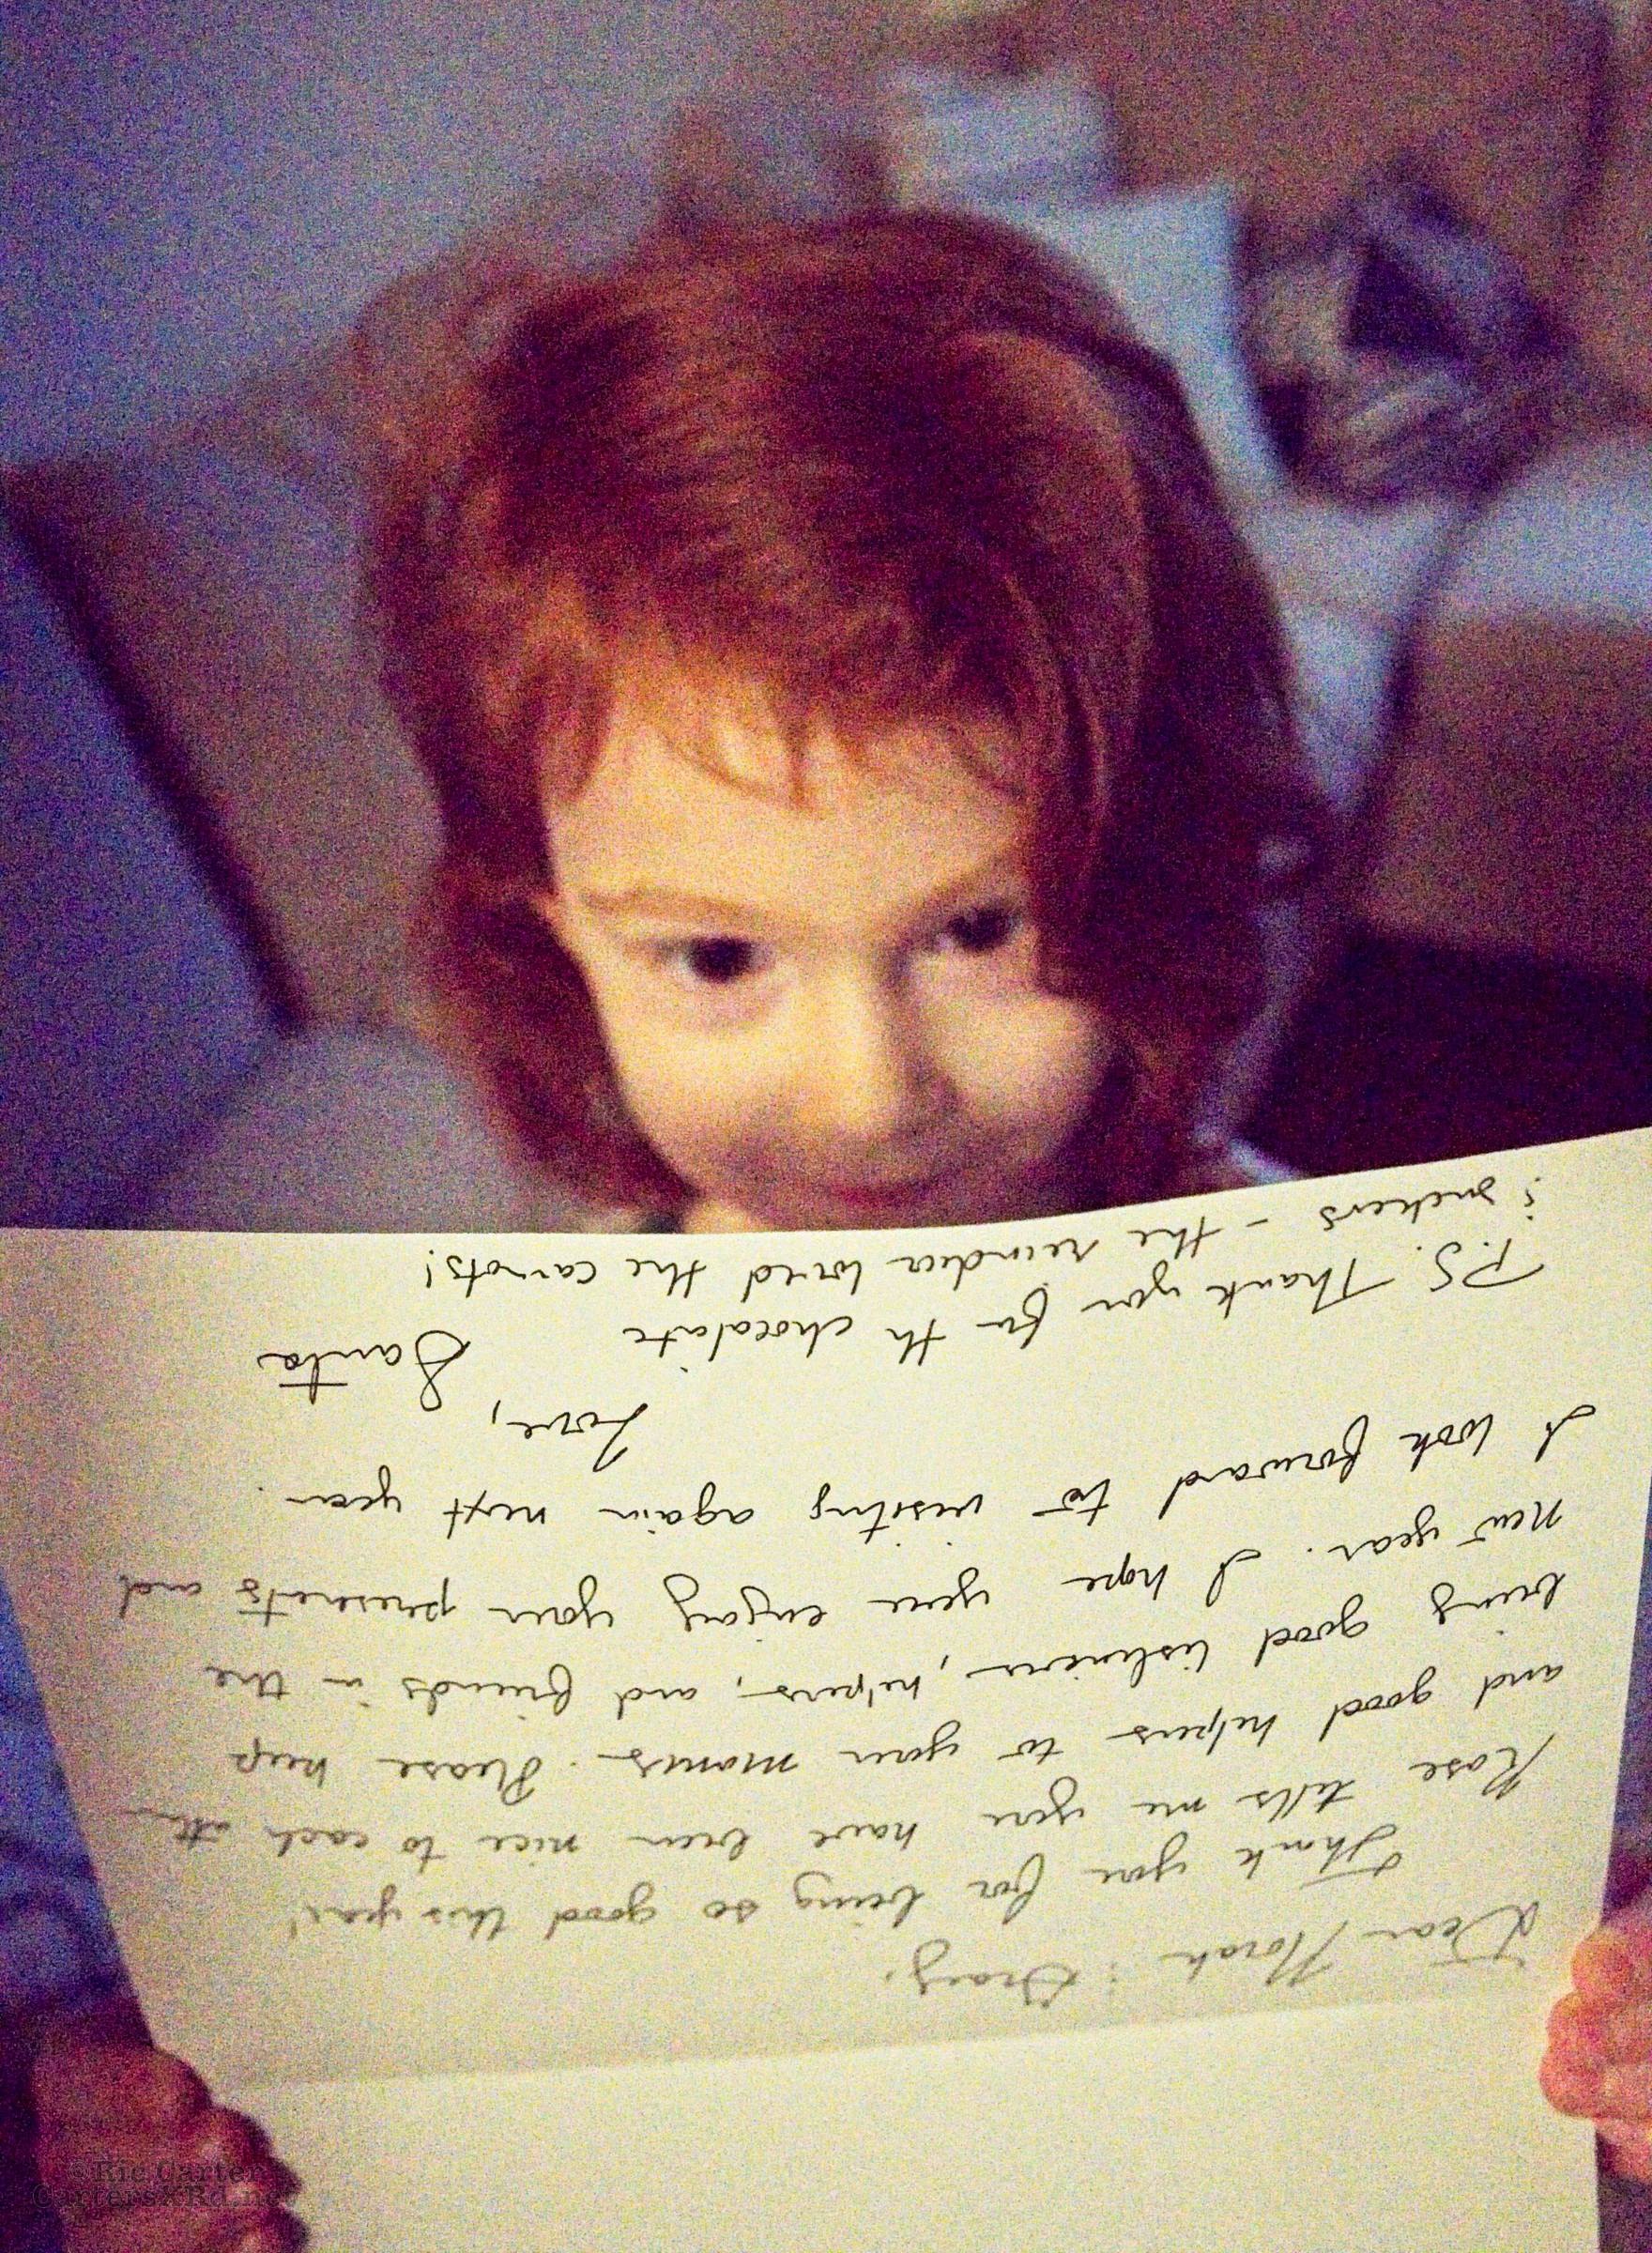 Dear Norah & Gracy,
Thank you for being so good this year!
Rose tells me you have been nice to each other
and good helpers to your moms. Please keep
being good listeners, helpers, and friends in the
new year. I hope you enjoy your presents and
I look forward to visiting again next year.
Love,
Santa
P.S. Thank you for the chocolate
& snickers - the reindeer loved the carrots!
©Ric Carter
CartersXRd.net